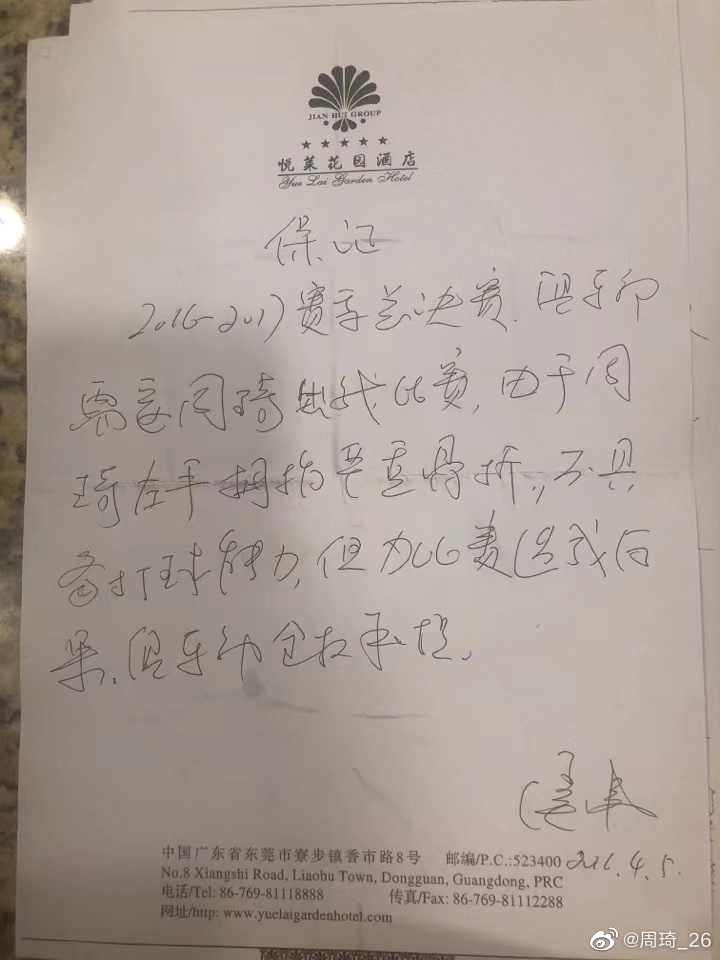 JIAN HUI GROUP
★★★★★
悦莱花园酒店
Yue Lai Garden Hotel
保证
2016-2017赛季总决赛.俱乐部
需要周琦出战比赛,由于周
琦左手拇指严重骨折,不具
备打球能力,但为比赛造成后
果,俱乐部全权承担.
中国广东省东莞市寮步镇香市路8号 邮编/P.C.:523400
No.8 Xiangshi Road, Liaobu Town, Dongguan, Guangdong, PRC
电话/Tel: 86-769-81118888 传真/Fax: 86-769-81112288
网址/http: www.yuelaigardenhotel.com
@周琦_26